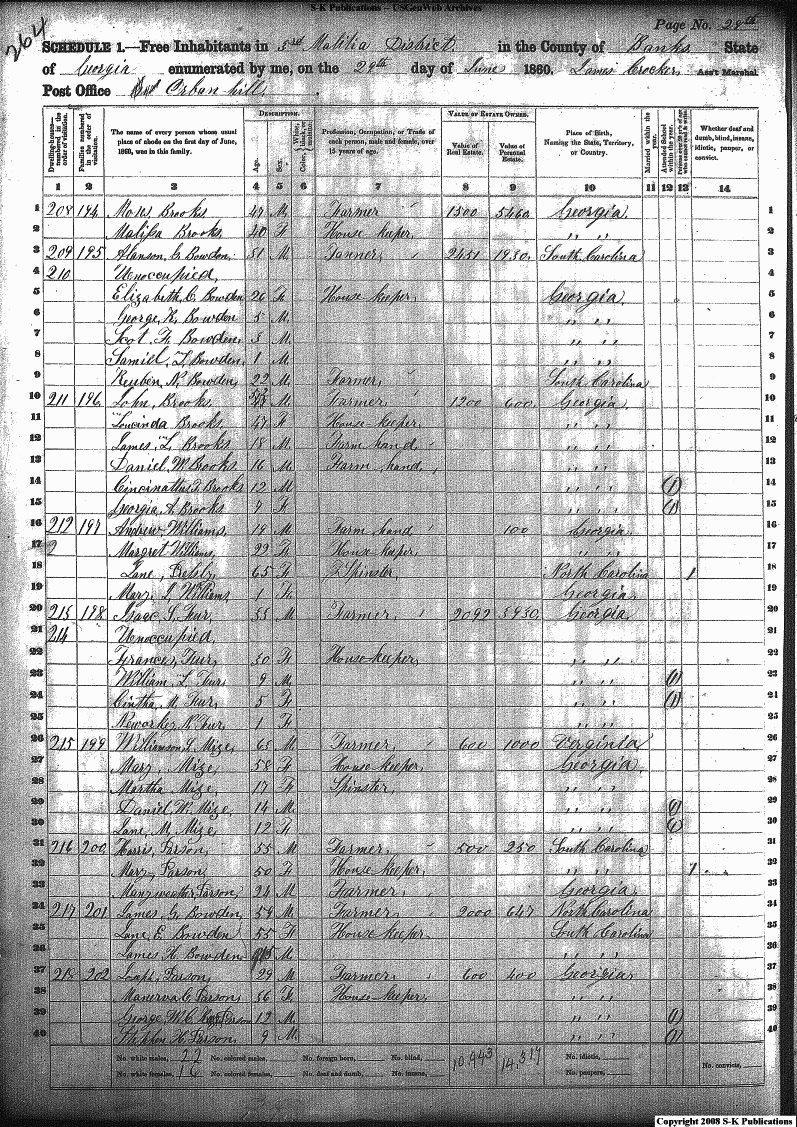 S-K Publications – USGenWeb Archives
Page No. 28th
264
SCHEDULE 1.—Free Inhabitants in 3rd Malitia District. in the County of Banks State
of Georgia enumerated by me, on the 29th day of June 1860. James Crocker, Ass't Marshal
Post Office Orban hills
DESCRIPTION. VALUE OF ESTATE OWNED.
Dwelling-houses—numbered in the order of visitation.
Families numbered in the order of visitation.
The name of every person whose usual place of abode on the first day of June, 1860, was in this family.
Age.
Sex.
Color,
Profession, Occupation, or Trade of each person, male and female, over 15 years of age.
Value of Real Estate.
Value of Personal Estate.
Place of Birth, Naming the State, Territory, or Country.
Married within the year.
Attended School within the year.
Whether deaf and dumb, blind, insane, idiotic, pauper, or convict.
1 2 3 4 5 6 7 8 9 10 11 12 13 14
1 208 194 Moses Brooks 47 M Farmer 1500 5460 Georgia 1
2 Malissa Brooks 40 F House keeper " " 2
3 209 195 Alanson G. Bowden 51 M Tanner 2451 1930 South Carolina 3
4 210 Unoccupied 4
5 Elizabeth C. Bowden 26 F House keeper Georgia 5
6 George K. Bowden 5 M " " 6
7 F. Bowden 3 M " " 7
8 Samiel T. Bowden 1 M " " 8
9 Reuben N. Bowden 22 M Farmer South Carolina 9
10 211 196 John, Brooks M Farmer 1200 600 Georgia 10
11 Loucinda Brooks 47 F House keeper " " 11
12 James L. Brooks 18 M Farm hand " " 12
13 Daniel W. Brooks 16 M Farm hand " " 13
14 Cincinattus F. Brooks 12 M " " (1) 14
15 Georgia A. Brooks 7 F " " (1) 15
16 212 197 Andrew Williams 19 M Farm hand 100 Georgia 16
17 2 Margret Williams 22 F House keeper " " 17
18 Jane, 65 F Spinster North Carolina 1 18
19 Mary L. Williams 1 F Georgia 19
20 213 198 Isaac S. 55 M Farmer 2092 3930 Georgia 20
21 214 Unoccupied 21
22 Frances, 30 F House keeper " " 22
23 William T. 9 M " " (1) 23
24 Cintha M. 5 F " " (1) 24
25 N. 1 F " " 25
26 215 199 Williamson L. Mize 65 M Farmer 600 1000 Virginia 26
27 Mary Mize 58 F House keeper Georgia 27
28 Martha Mize 17 F Spinster " " 28
29 Daniel W. Mize 14 M " " (1) 29
30 Jane M. Mize 12 F " " (1) 30
31 216 200 Harris, Parson 55 M Farmer 500 250 South Carolina 31
32 Mary Parson 50 F House keeper " " 1 32
33 Parson 24 M Farmer Georgia 33
34 217 201 James G. Bowden 59 M Farmer 2000 647 North Carolina 34
35 Jane E. Bowden 55 F House keeper South Carolina 35
36 James H. Bowden M " " 36
37 218 202 Parson 29 M Farmer 600 400 Georgia 37
38 Manerva C. Parson 36 F House keeper 38
39 George W. C. Parson 12 M " " (1) 39
40 Stephen H. Parson 9 M " " (1) 40
No. white males, 22 No. colored males, No. foreign born, No. blind, 10,943 14,317 No. idiotic, No. convicts,
No. white females, 16 No. colored females, No. deaf and dumb, No. insane, No. paupers,
Copyright 2008 S-K Publications